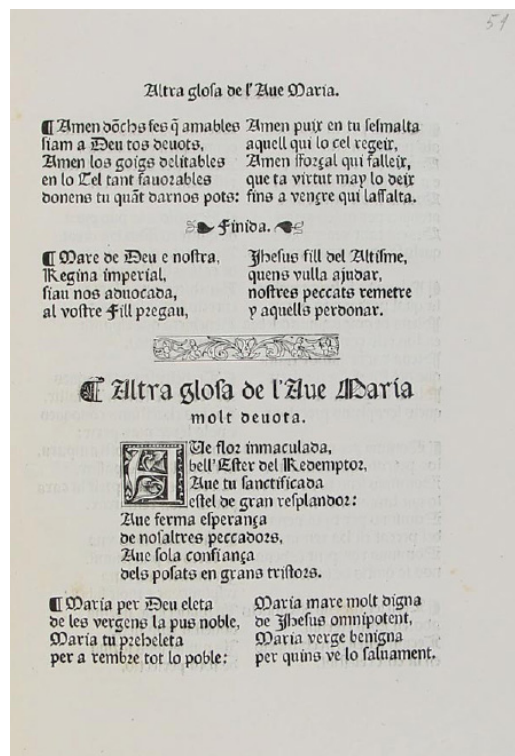 51
Altra glosa de l'Aue Maria.
¶ Amen dõchs fes q̃ amables
siam a Deu tos deuots,
Amen los goigs delitables
en lo Cel tant fauorables
donens tu quãt darnos pots:
Amen puix en tu sesmalta
aquell qui lo cel regeix,
Amen fforçal qui falleix,
que ta virtut may lo deix
fins a vençre qui lassalta.
Finida.
¶ Mare de Deu e nostra,
Regina imperial,
siau nos aduocada,
al vostre Fill pregau,
Jhesus fill del Altisme,
quens vulla ajudar,
nostres peccats remetre
y aquells perdonar.
¶ Altra glosa de l'Aue Maria
molt deuota.
AUe flor inmaculada,
bell' Ester del Redemptor,
Aue tu sanctificada
estel de gran resplandor:
Aue ferma esperança
de nosaltres peccadors,
Aue sola confiança
dels posats en grans tristors.
¶ Maria per Deu eleta
de les vergens la pus noble,
Maria tu preheleta
per a rembre tot lo poble:
Maria mare molt digna
de Jhesus omnipotent,
Maria verge benigna
per quins ve lo saluament.